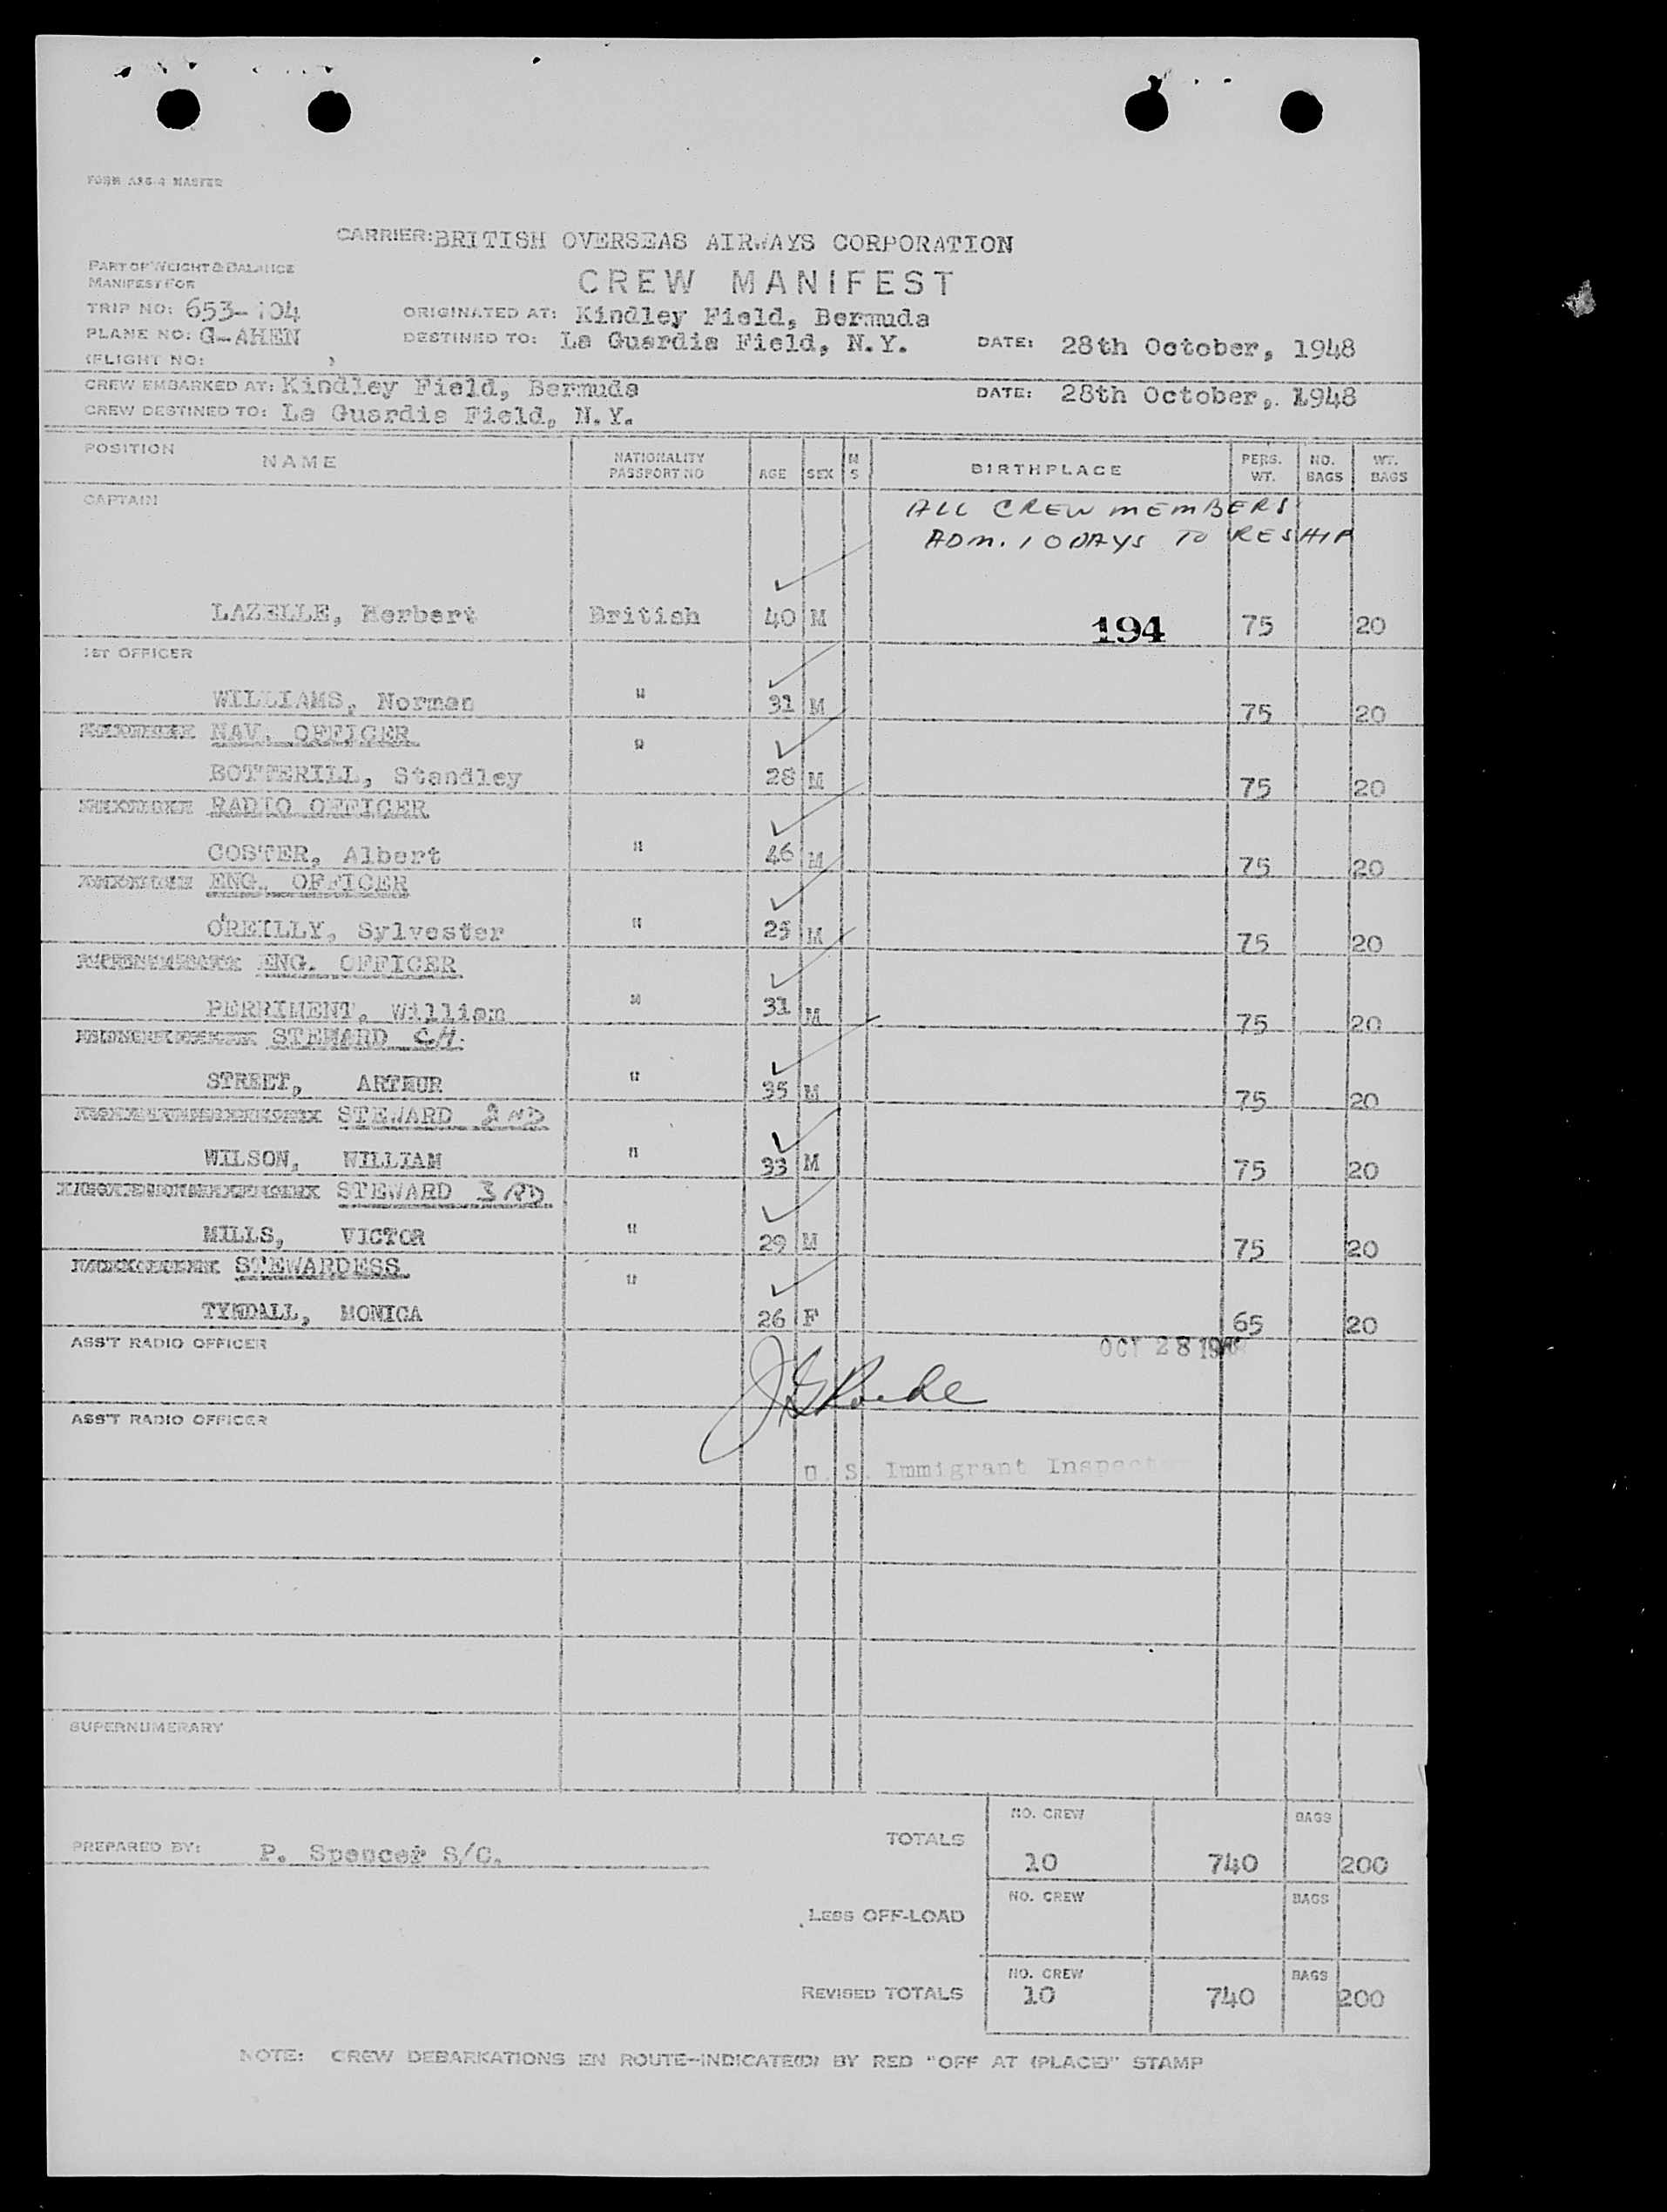 FORM
MASTER
CARRIER: BRITISH OVERSEAS AIRWAYS CORPORATION
PART OF WEIGHT & BALANCE
MANIFEST FOR
CREW MANIFEST
TRIP NO: 653-104 ORIGINATED AT: Kindley Field, Bermuda
PLANE NO: G-AHEN DESTINED TO: La Guardia Field, N.Y. DATE: 28th October, 1948
(FLIGHT NO: )
CREW EMBARKED AT: Kindley Field, Bermuda DATE: 28th October, 1948
CREW DESTINED TO: La Guardia Field, N.Y.
POSITION NAME NATIONALITY PASSPORT NO AGE SEX M S BIRTHPLACE PERS. WT. NO. BAGS WT. BAGS
CAPTAIN
ALL CREW MEMBERS
ADM. 10 DAYS TO RESHIP
LAZELLE, Herbert British 40 M 194 75 20
1ST OFFICER
WILLIAMS, Norman " 31 M 75 20
NAV. OFFICER
BOTTERILL, Standley " 28 M 75 20
RADIO OFFICER
COSTER, Albert " 46 M 75 20
ENG. OFFICER
O'REILLY, Sylvester " M 75 20
ENG. OFFICER
PERRIMENT, William " 31 M 75 20
STEWARD CH.
STREET, ARTHUR " 35 M 75 20
STEWARD 2ND
WILSON, WILLIAM " 33 M 75 20
STEWARD 3RD
MILLS, VICTOR " 29 M 75 20
STEWARDESS
TYNDALL, MONICA " 26 F 65 20
ASS'T RADIO OFFICER OCT 28 1948
ASS'T RADIO OFFICER
U. S. Immigrant Inspector
SUPERNUMERARY
NO. CREW BAGS
PREPARED BY: P. Spencer S/C. TOTALS 10 740 200
NO. CREW BAGS
LESS OFF-LOAD
NO. CREW BAGS
REVISED TOTALS 10 740 200
NOTE: CREW DEBARKATIONS EN ROUTE-INDICATE(D) BY RED "OFF AT (PLACE)" STAMP